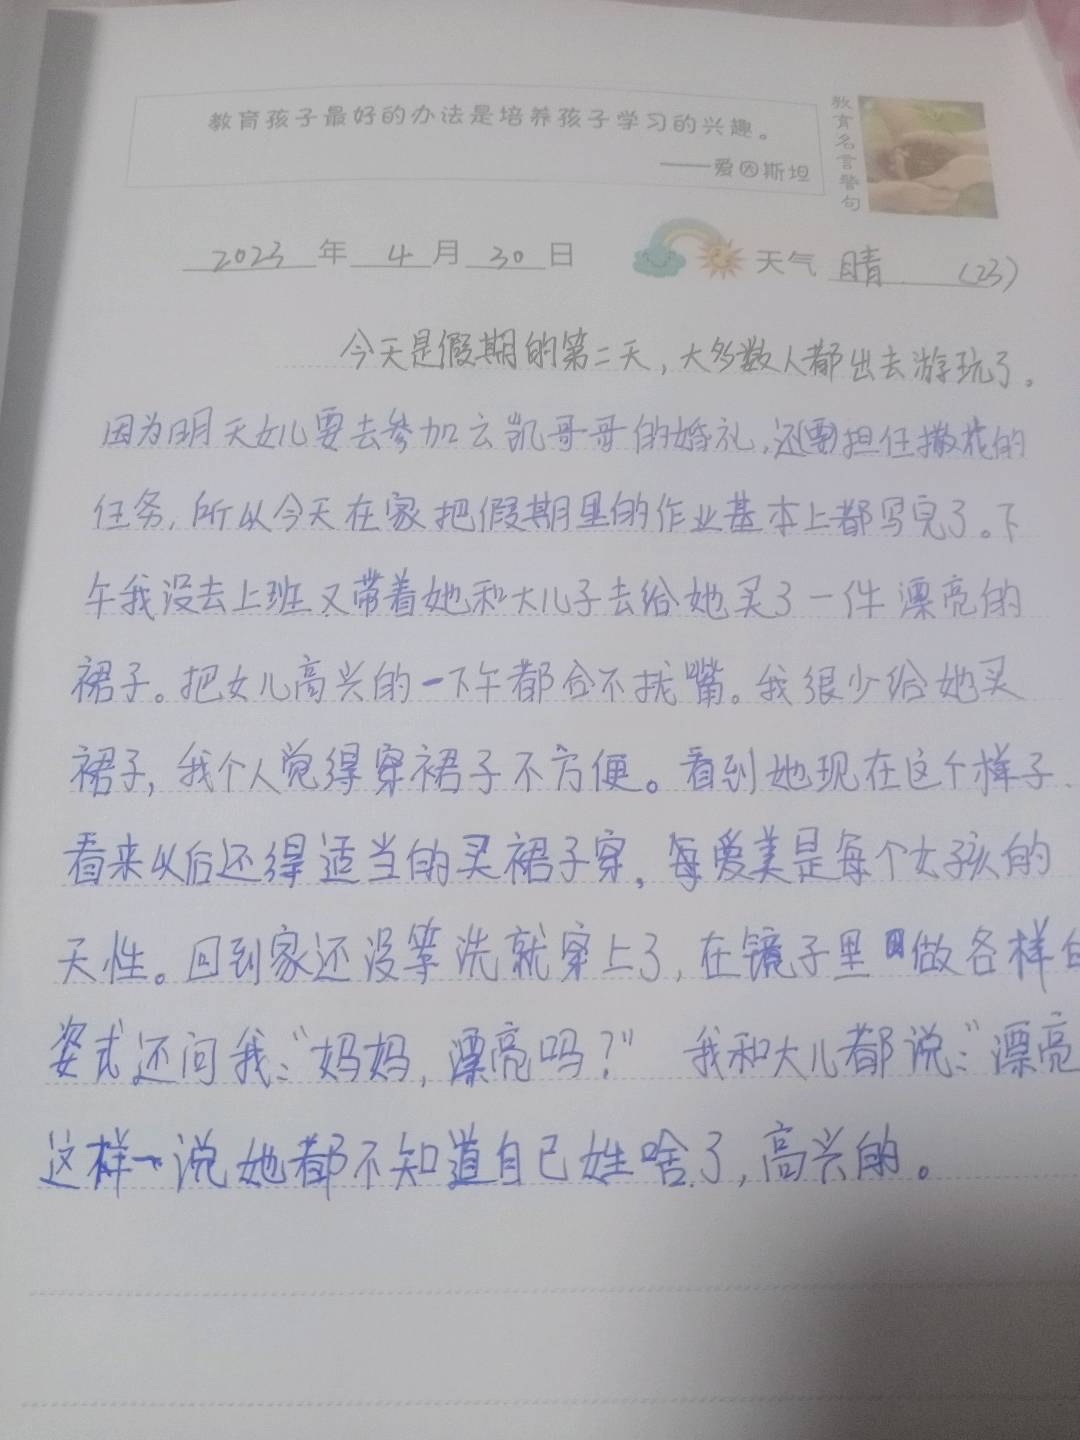 教育孩子最好的办法是培养孩子学习的兴趣。
——爱因斯坦
教育名言警句
2023年4月30日 天气 晴 (23)
今天是假期的第二天，大多数人都出去游玩了。
因为明天女儿要去参加云凯哥哥的婚礼，还要担任撒花的
任务，所以今天在家把假期里的作业基本上都写完了。下
午我没去上班又带着她和大儿子去给她买了一件漂亮的
裙子。把女儿高兴的一下午都合不拢嘴。我很少给她买
裙子，我个人觉得穿裙子不方便。看到她现在这个样子，
看来以后还得适当的买裙子穿，每爱美是每个女孩的
天性。回到家还没等洗就穿上了，在镜子里做各样的
姿式还问我：“妈妈，漂亮吗？” 我和大儿都说：“漂亮
这样一说她都不知道自己姓啥了，高兴的。